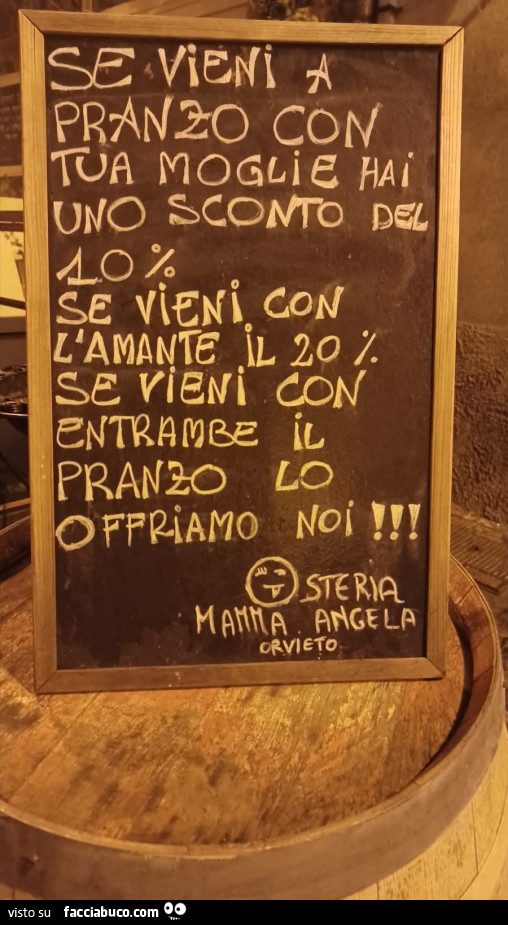 SE VIENI A
PRANZO CON
TUA MOGLIE HAI
UNO SCONTO DEL
10%
SE VIENI CON
L'AMANTE IL 20%
SE VIENI CON
ENTRAMBE IL
PRANZO LO
OFFRIAMO NOI !!!
OSTERIA
MAMMA ANGELA
ORVIETO
visto su facciabuco.com